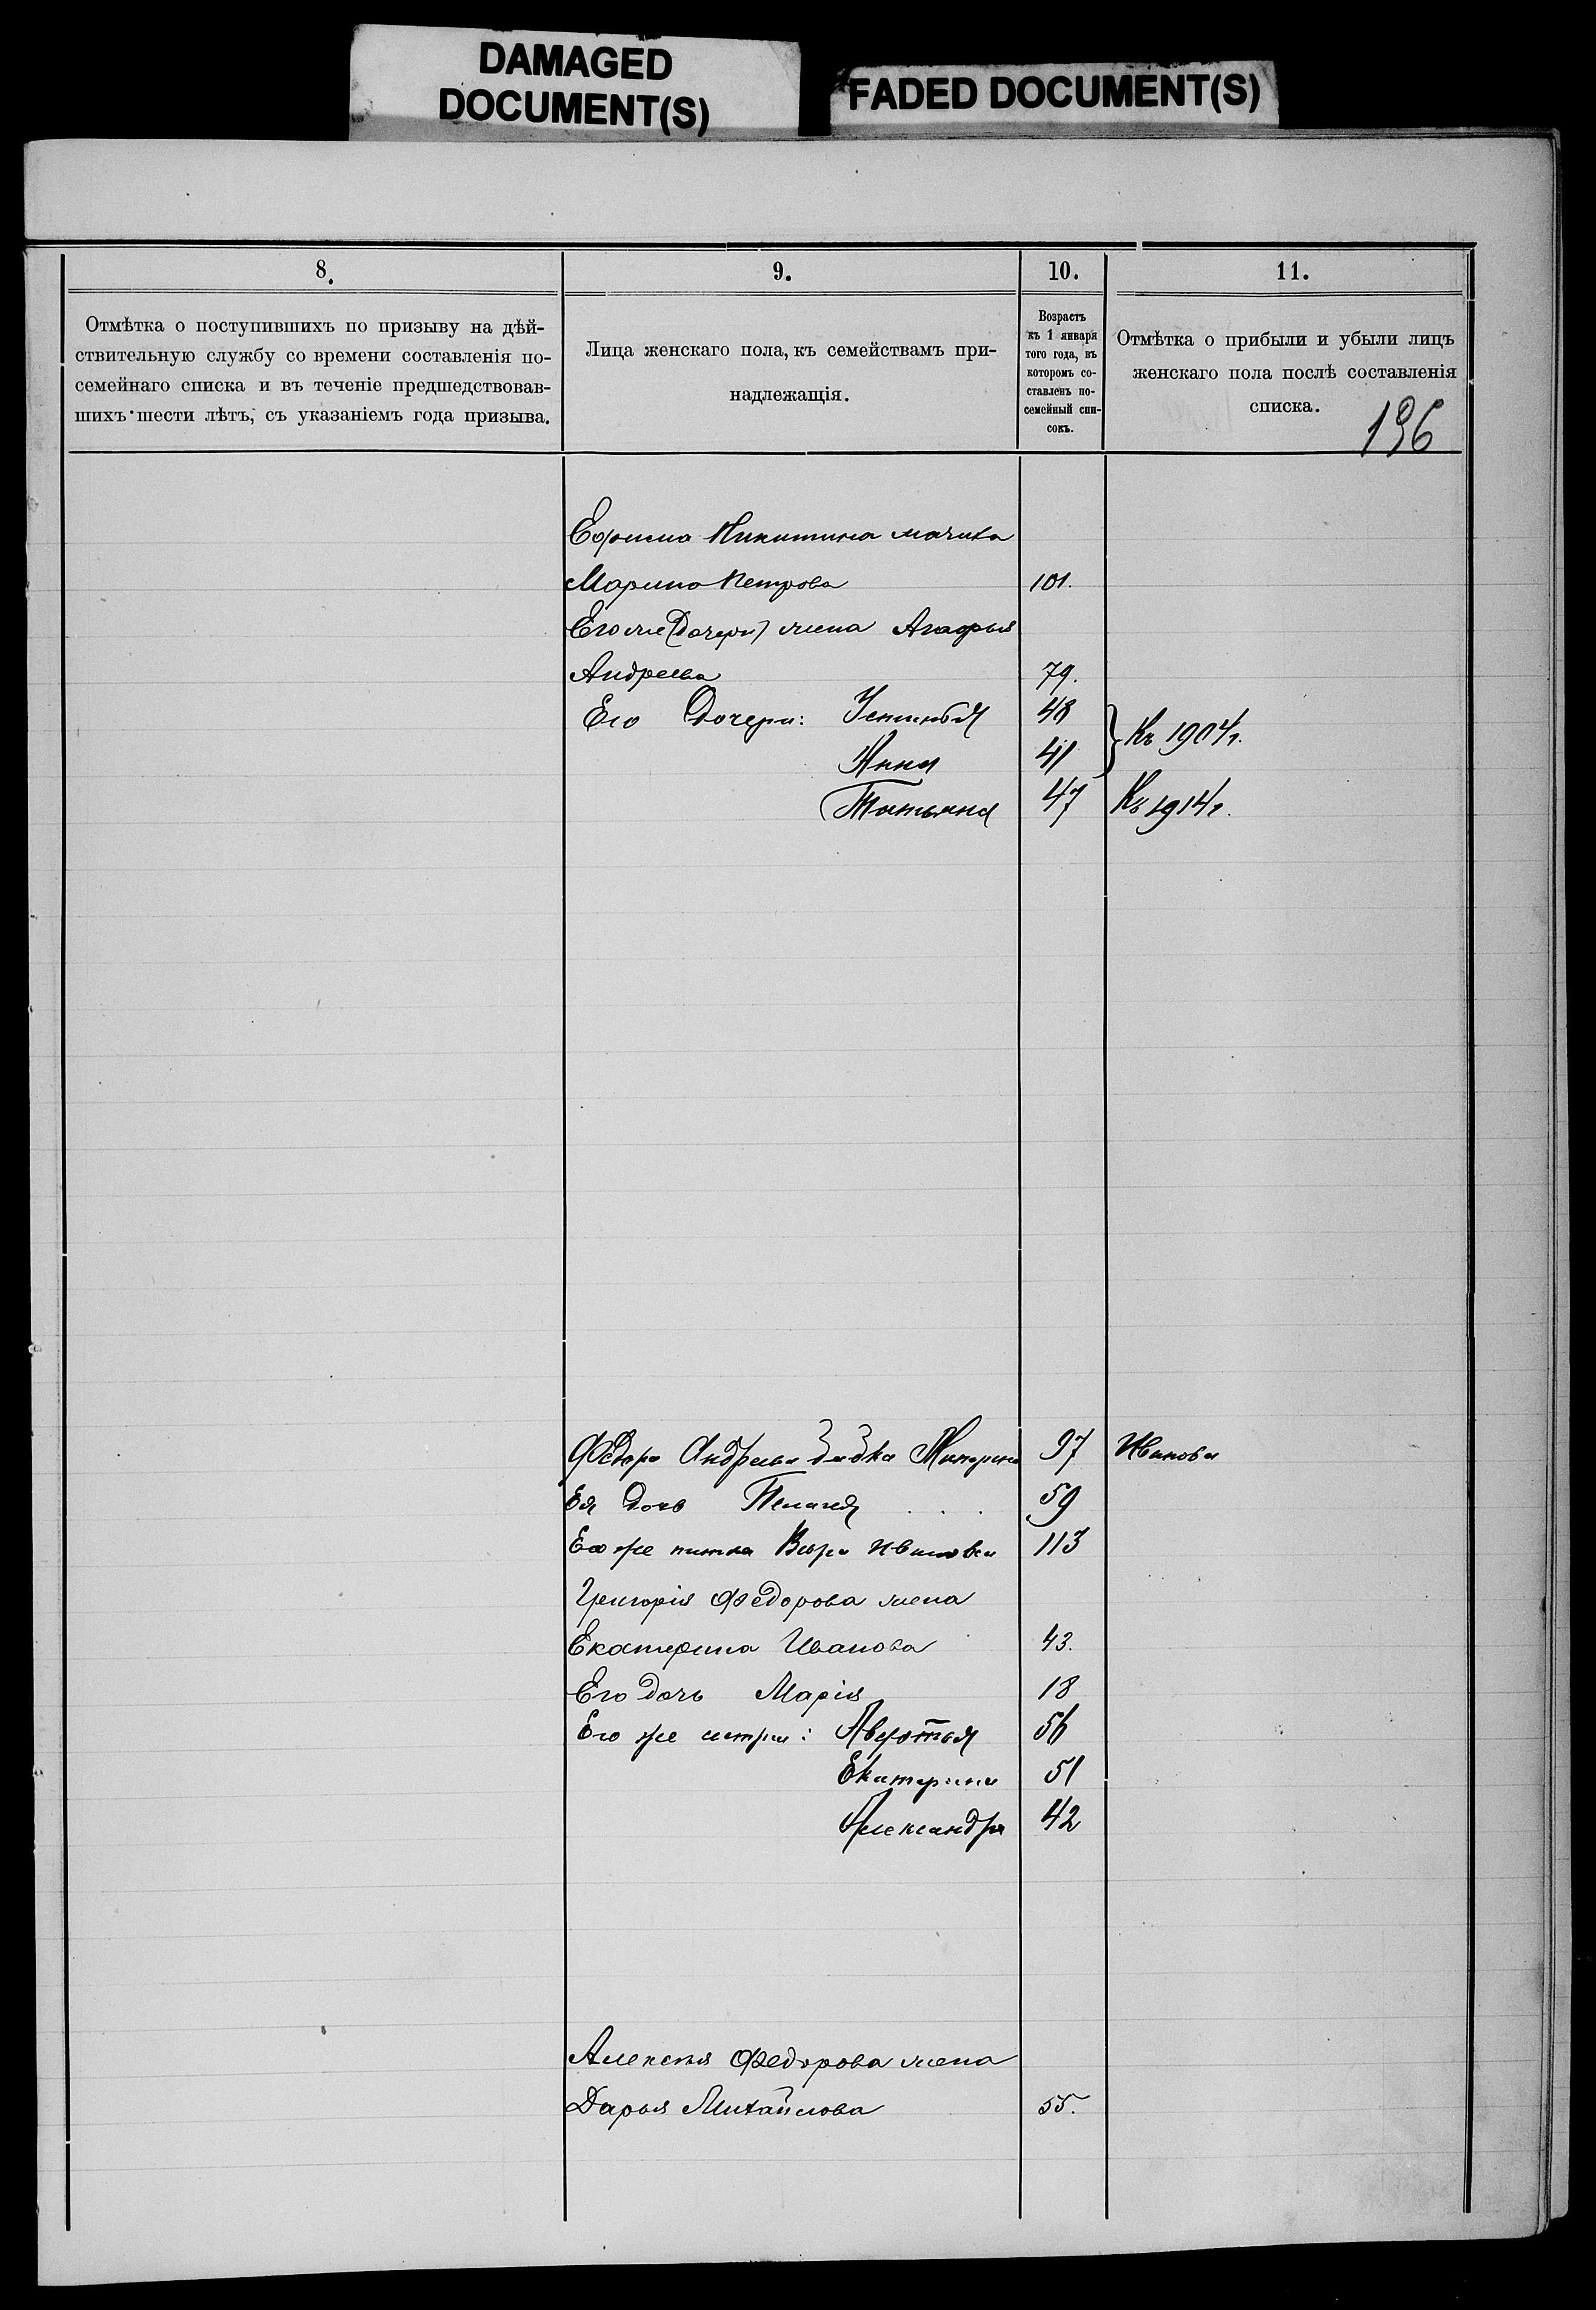 DAMAGED
DOCUMENT(S)
FADED DOCUMENT(S)
8.
9.
10.
11.
Отмѣтка о поступившихъ по призыву на дѣй-
ствительную службу со времени составленія по-
семейнаго списка и въ теченіе предшедствовав-
шихъ шести лѣтъ, съ указаніемъ года призыва.
Лица женскаго пола, къ семействамъ при-
надлежащія.
Возрастъ
къ 1 января
того года, въ
которомъ со-
ставленъ по-
семейный спи-
сокъ.
Отмѣтка о прибыли и убыли лицъ
женскаго пола послѣ составленія
списка.
196
Ефима Никитина мачиха
Марина Петрова 101.
Его же (Дочери) жена Агафья
Андреева 79.
Его Дочери: Устинья 48
Анна 41 } Къ 1904 г.
Татьяна 47 Къ 1914 г.
Федора Андреева дядка 97 Иванова
Ея дочь Пелагея 59
Ея же тетка Вера Иванова 113
Григорія Федорова жена
Екатерина Иванова 43.
Его дочь Марія 18
Его же сестры: Авдотья 56
Екатерина 51
Александра 42
Алексѣя Федорова жена
Дарья Михайлова 55.